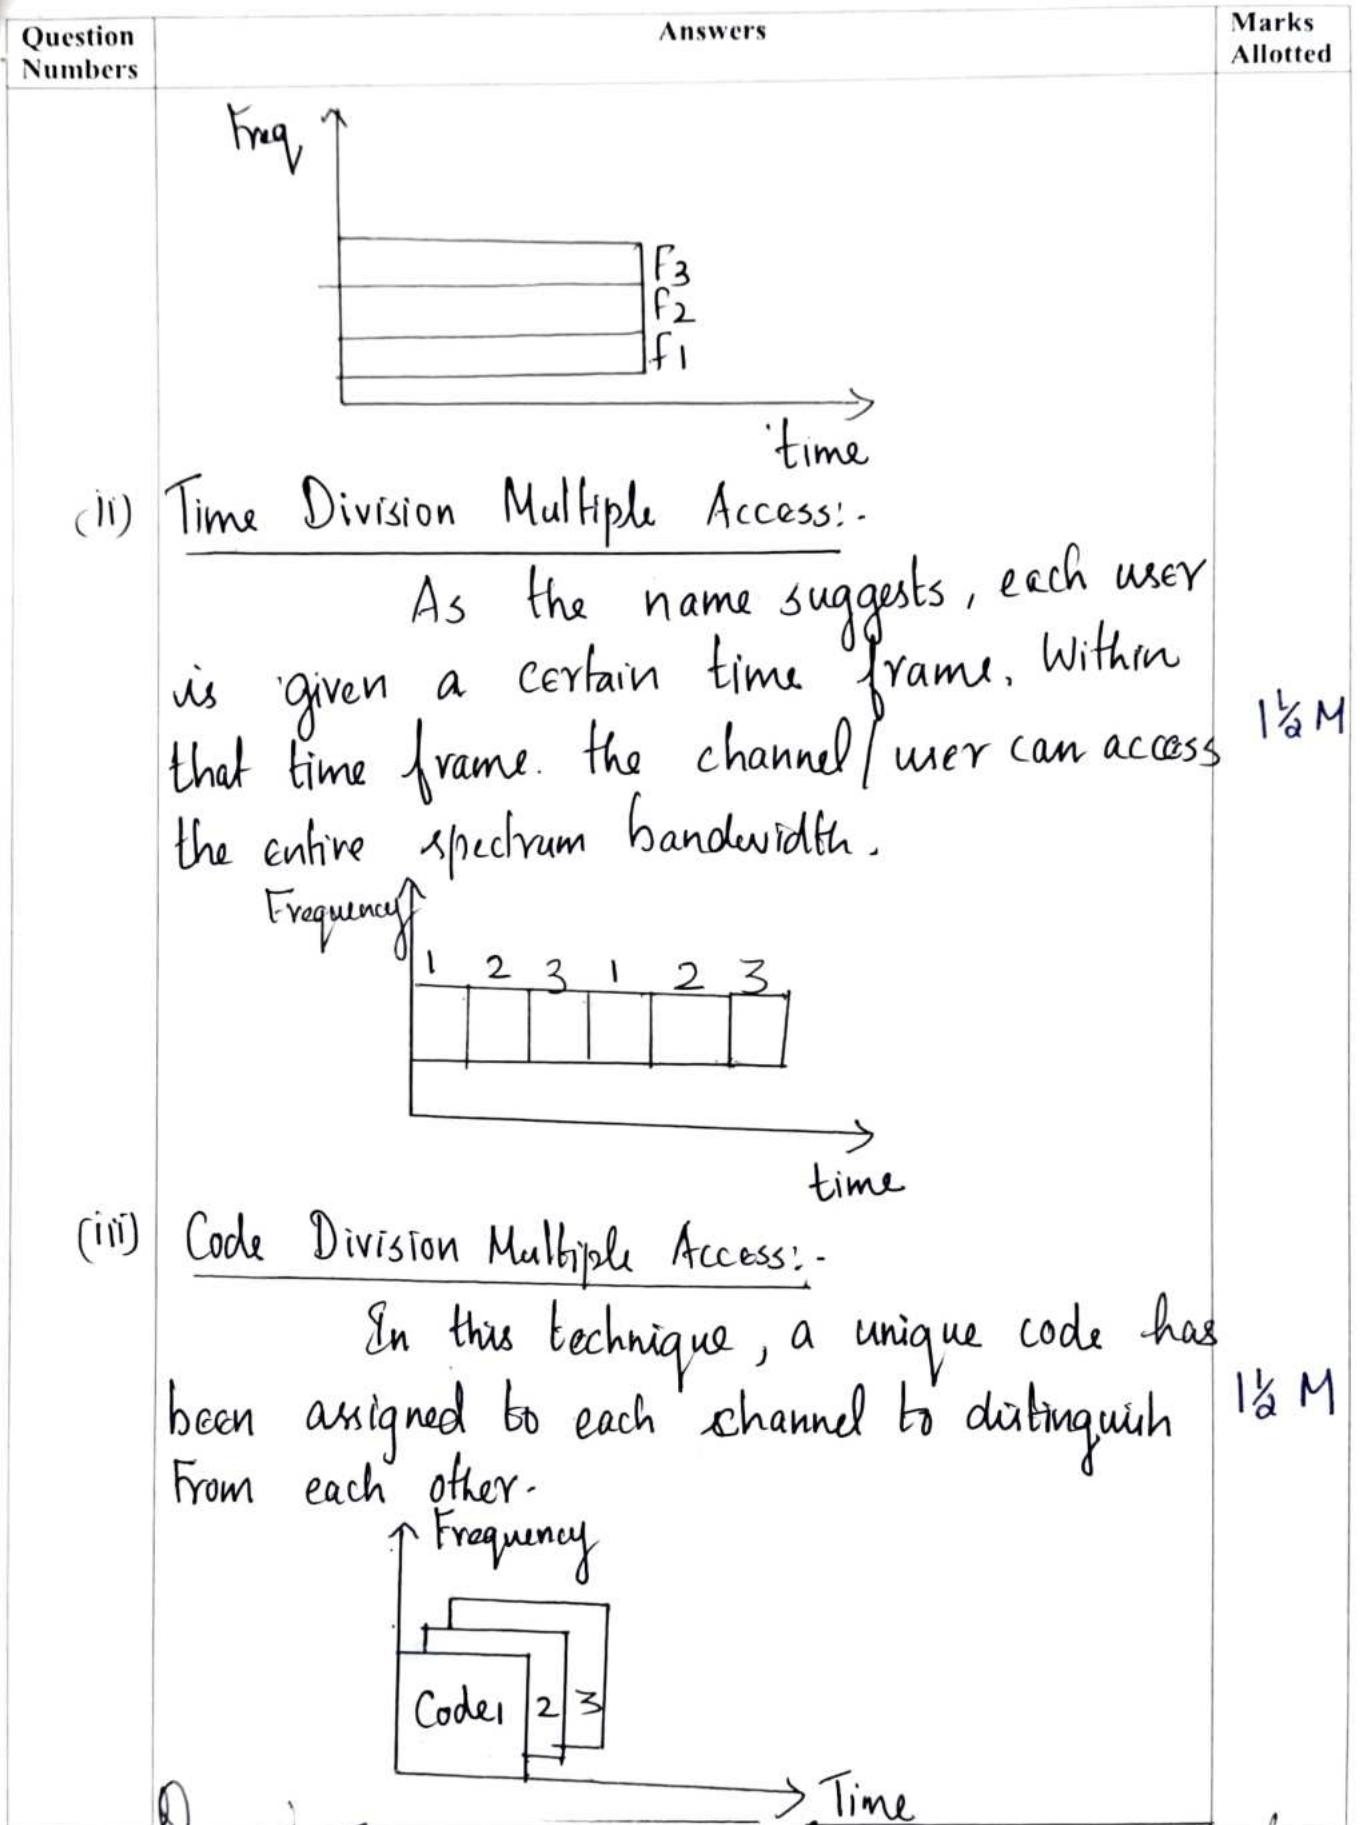 Question Numbers
Answers
Marks Allotted
Freq
F3
f2
f1
time
(ii) Time Division Multiple Access:-
As the name suggests, each user
is given a certain time frame. Within
that time frame. the channel/user can access
1½ M
the entire spectrum bandwidth.
Frequency
1 2 3 1 2 3
time
(iii) Code Division Multiple Access:-
In this technique, a unique code has
been assigned to each channel to distinguish
1½ M
From each other.
Frequency
Code1 2 3
Time